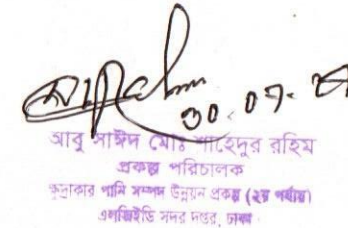 30.07.
আবু সাঈদ মোঃ শাহেদুর রহিম
প্রকল্প পরিচালক
ক্ষুদ্রাকার পানি সম্পদ উন্নয়ন প্রকল্প (২য় পর্যায়)
এলজিইডি সদর দপ্তর, ঢাকা